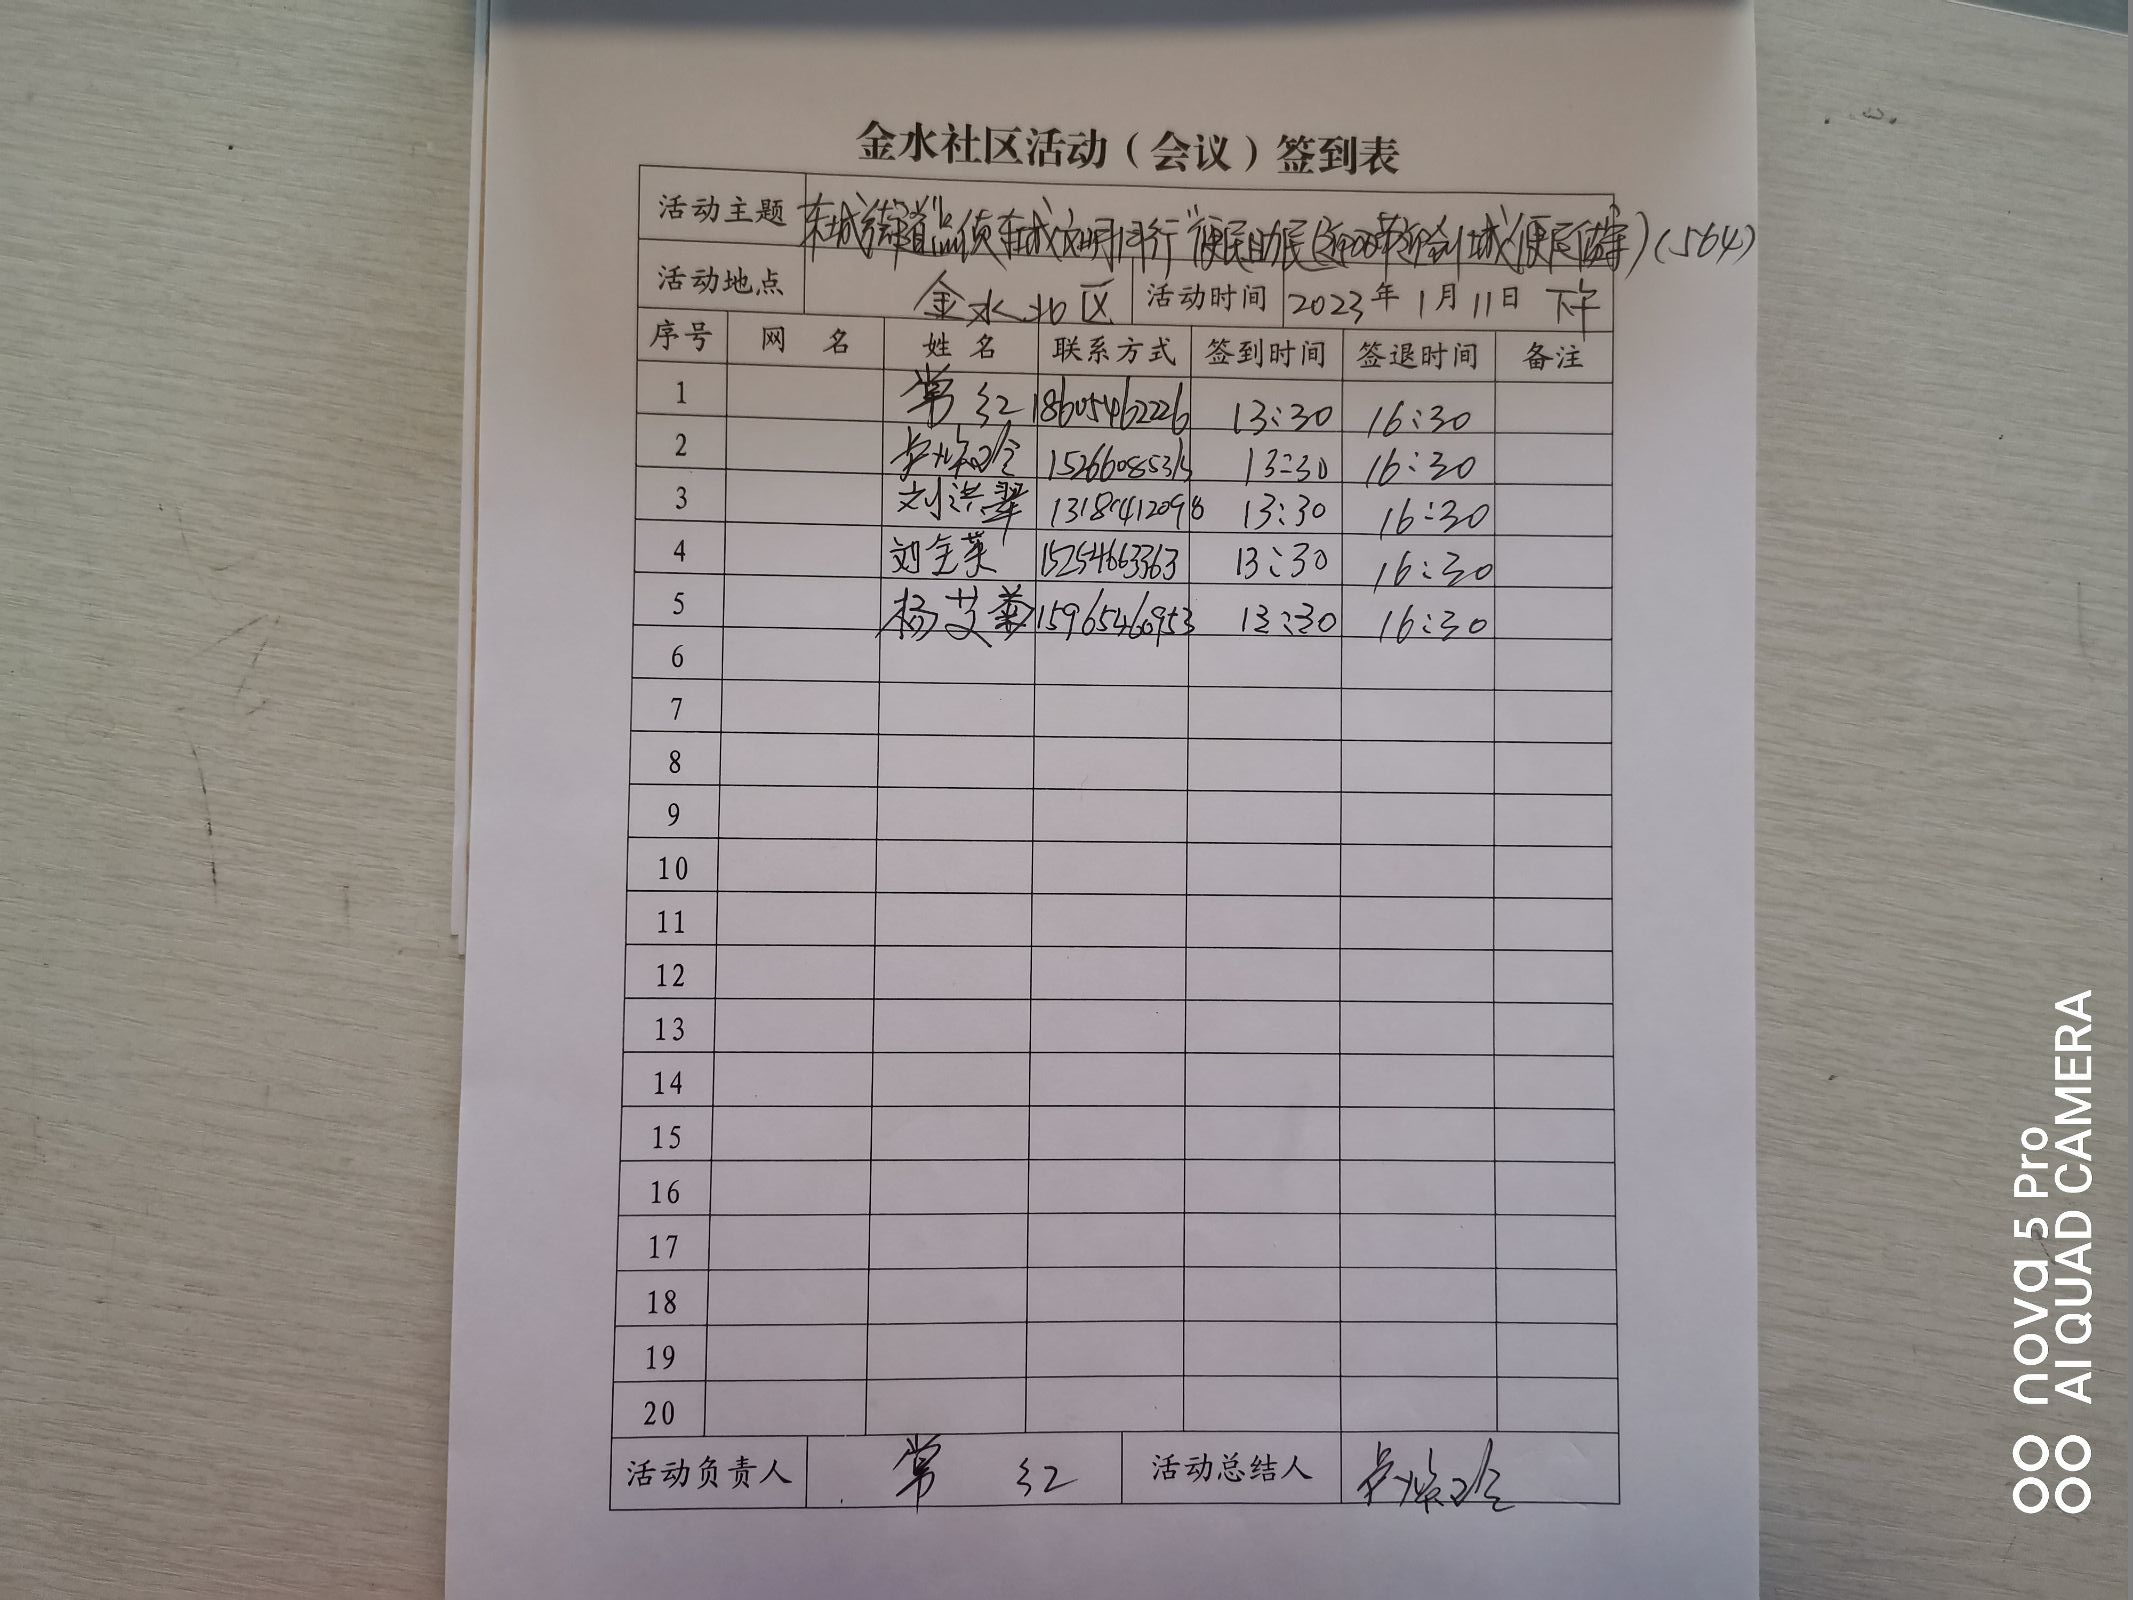 金水社区活动（会议）签到表
活动主题 东城街道"品质东城 文明同行"便民助民 (564)
活动地点 金水北区 活动时间 2023年1月11日 下午
序号 网 名 姓 名 联系方式 签到时间 签退时间 备注
1 常红 18605462226 13:30 16:30
2 13:30 16:30
3 刘洪翠 13:30 16:30
4 刘全英 15254663363 13:30 16:30
5 杨艾 15965460953 13:30 16:30
6
7
8
9
10
11
12
13
14
15
16
17
18
19
20
活动负责人 常 红 活动总结人
nova 5 Pro
AI QUAD CAMERA